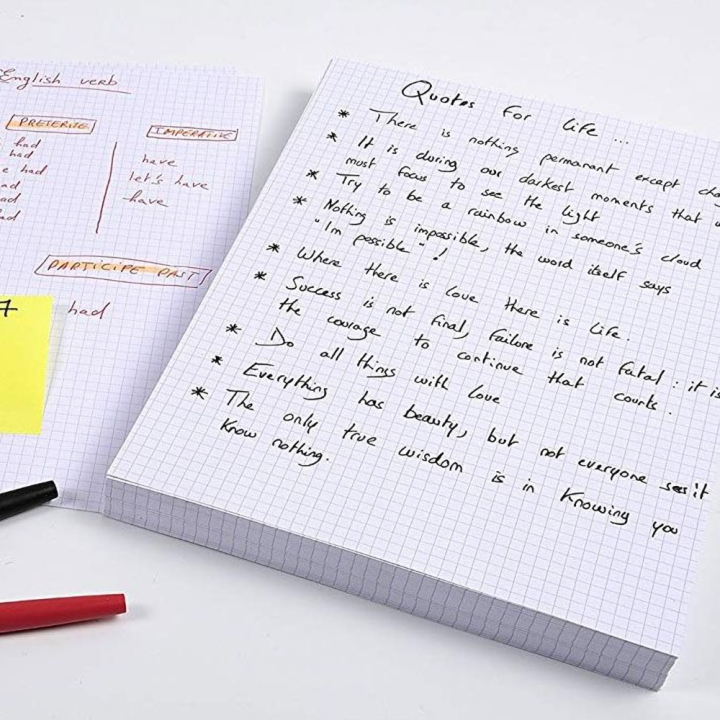 English verb
PRETERITE
IMPERATIVE
had
had
had
had
had
had
have
let's have
have
PARTICIPE PAST
had
7
Quotes for life ...
* There is nothing permanant except
* It is during our darkest moments that
must focus to see the light
* Try to be a rainbow in someone's cloud
* Nothing is impossible, the word itself says
"Im possible" !
* Where there is love there is life.
* Success is not final, failure is not fatal : it is
the courage to continue that counts.
* Do all things with love
* Everything has beauty, but not everyone sees it
* The only true wisdom is in Knowing you
Know nothing.